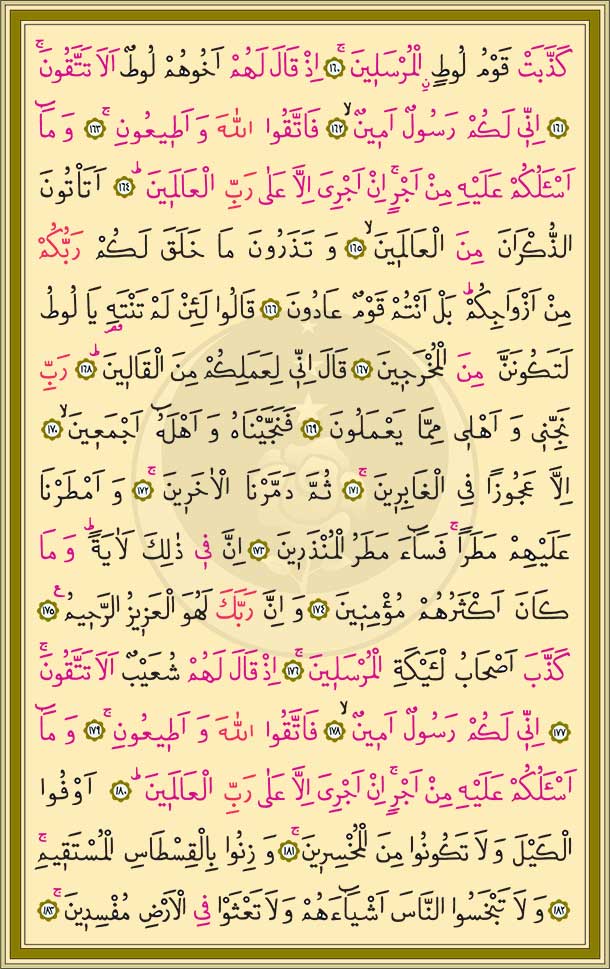 كَذَّبَتْ قَوْمُ لُوطٍ ۨالْمُرْسَلٖينَۚ ﴿١٦٠﴾ اِذْ قَالَ لَهُمْ اَخُوهُمْ لُوطٌ اَلَا تَتَّقُونَۚ
﴿١٦١﴾ اِنّٖى لَكُمْ رَسُولٌ اَمٖينٌۙ ﴿١٦٢﴾ فَاتَّقُوا اللّٰهَ وَ اَطٖيعُونِۚ ﴿١٦٣﴾ وَ مَٓا
اَسْئَلُكُمْ عَلَيْهِ مِنْ اَجْرٍۚ اِنْ اَجْرِىَ اِلَّا عَلٰى رَبِّ الْعَالَمٖينَؕ ﴿١٦٤﴾ اَتَاْتُونَ
الذُّكْرَانَ مِنَ الْعَالَمٖينَۙ ﴿١٦٥﴾ وَ تَذَرُونَ مَا خَلَقَ لَكُمْ رَبُّكُمْ
مِنْ اَزْوَاجِكُمْؕ بَلْ اَنْتُمْ قَوْمٌ عَادُونَ ﴿١٦٦﴾ قَالُوا لَئِنْ لَمْ تَنْتَهِ يَا لُوطُ
لَتَكُونَنَّ مِنَ الْمُخْرَجٖينَ ﴿١٦٧﴾ قَالَ اِنّٖى لِعَمَلِكُمْ مِنَ الْقَالٖينَؕ ﴿١٦٨﴾ رَبِّ
نَجِّنٖى وَ اَهْلٖى مِمَّا يَعْمَلُونَ ﴿١٦٩﴾ فَنَجَّيْنَاهُ وَ اَهْلَهُٓ اَجْمَعٖينَۙ ﴿١٧٠﴾
اِلَّا عَجُوزًا فِى الْغَابِرٖينَۚ ﴿١٧١﴾ ثُمَّ دَمَّرْنَا الْاٰخَرٖينَۚ ﴿١٧٢﴾ وَ اَمْطَرْنَا
عَلَيْهِمْ مَطَرًاۚ فَسَٓاءَ مَطَرُ الْمُنْذَرٖينَ ﴿١٧٣﴾ اِنَّ فٖى ذٰلِكَ لَاٰيَةًؕ وَ مَا
كَانَ اَكْثَرُهُمْ مُؤْمِنٖينَ ﴿١٧٤﴾ وَ اِنَّ رَبَّكَ لَهُوَ الْعَزٖيزُ الرَّحٖيمُ ع ﴿١٧٥﴾
كَذَّبَ اَصْحَابُ لْـَٔيْكَةِ الْمُرْسَلٖينَۚ ﴿١٧٦﴾ اِذْ قَالَ لَهُمْ شُعَيْبٌ اَلَا تَتَّقُونَۚ
﴿١٧٧﴾ اِنّٖى لَكُمْ رَسُولٌ اَمٖينٌۙ ﴿١٧٨﴾ فَاتَّقُوا اللّٰهَ وَ اَطٖيعُونِۚ ﴿١٧٩﴾ وَ مَٓا
اَسْئَلُكُمْ عَلَيْهِ مِنْ اَجْرٍۚ اِنْ اَجْرِىَ اِلَّا عَلٰى رَبِّ الْعَالَمٖينَؕ ﴿١٨٠﴾ اَوْفُوا
الْكَيْلَ وَ لَا تَكُونُوا مِنَ الْمُخْسِرٖينَۚ ﴿١٨١﴾ وَ زِنُوا بِالْقِسْطَاسِ الْمُسْتَقٖيمِۚ
﴿١٨٢﴾ وَ لَا تَبْخَسُوا النَّاسَ اَشْيَٓاءَهُمْ وَ لَا تَعْثَوْا فِى الْاَرْضِ مُفْسِدٖينَۚ ﴿١٨٣﴾